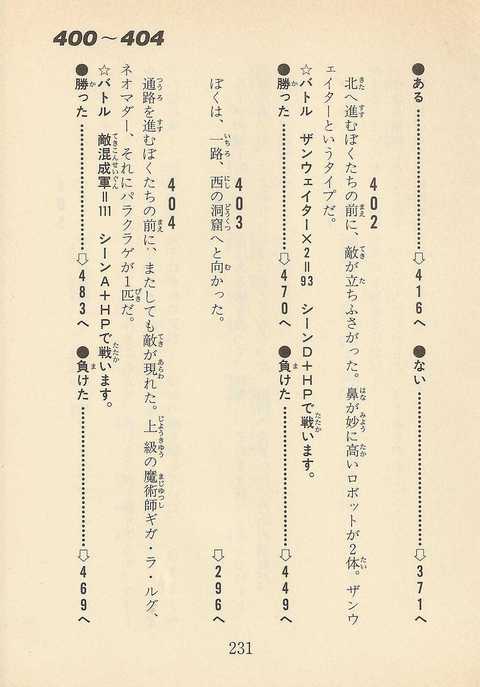 400〜404
●ある………⇨416へ ●ない………⇨371へ
402
北へ進むぼくたちの前に、敵が立ちふさがった。鼻が妙に高いロボットが2体。ザンウ
ェイターというタイプだ。
☆バトル ザンウェイター×2=93 シーンD+HPで戦います。
●勝った………⇨470へ ●負けた………⇨449へ
403
ぼくは、一路、西の洞窟へと向かった。 ⇨296へ
404
通路を進むぼくたちの前に、またしても敵が現れた。上級の魔術師ギガ・ラ・ルグ、
ネオマダー、それにパラクラゲが1匹だ。
☆バトル 敵混成軍=111 シーンA+HPで戦います。
●勝った………⇨483へ ●負けた………⇨469へ
231